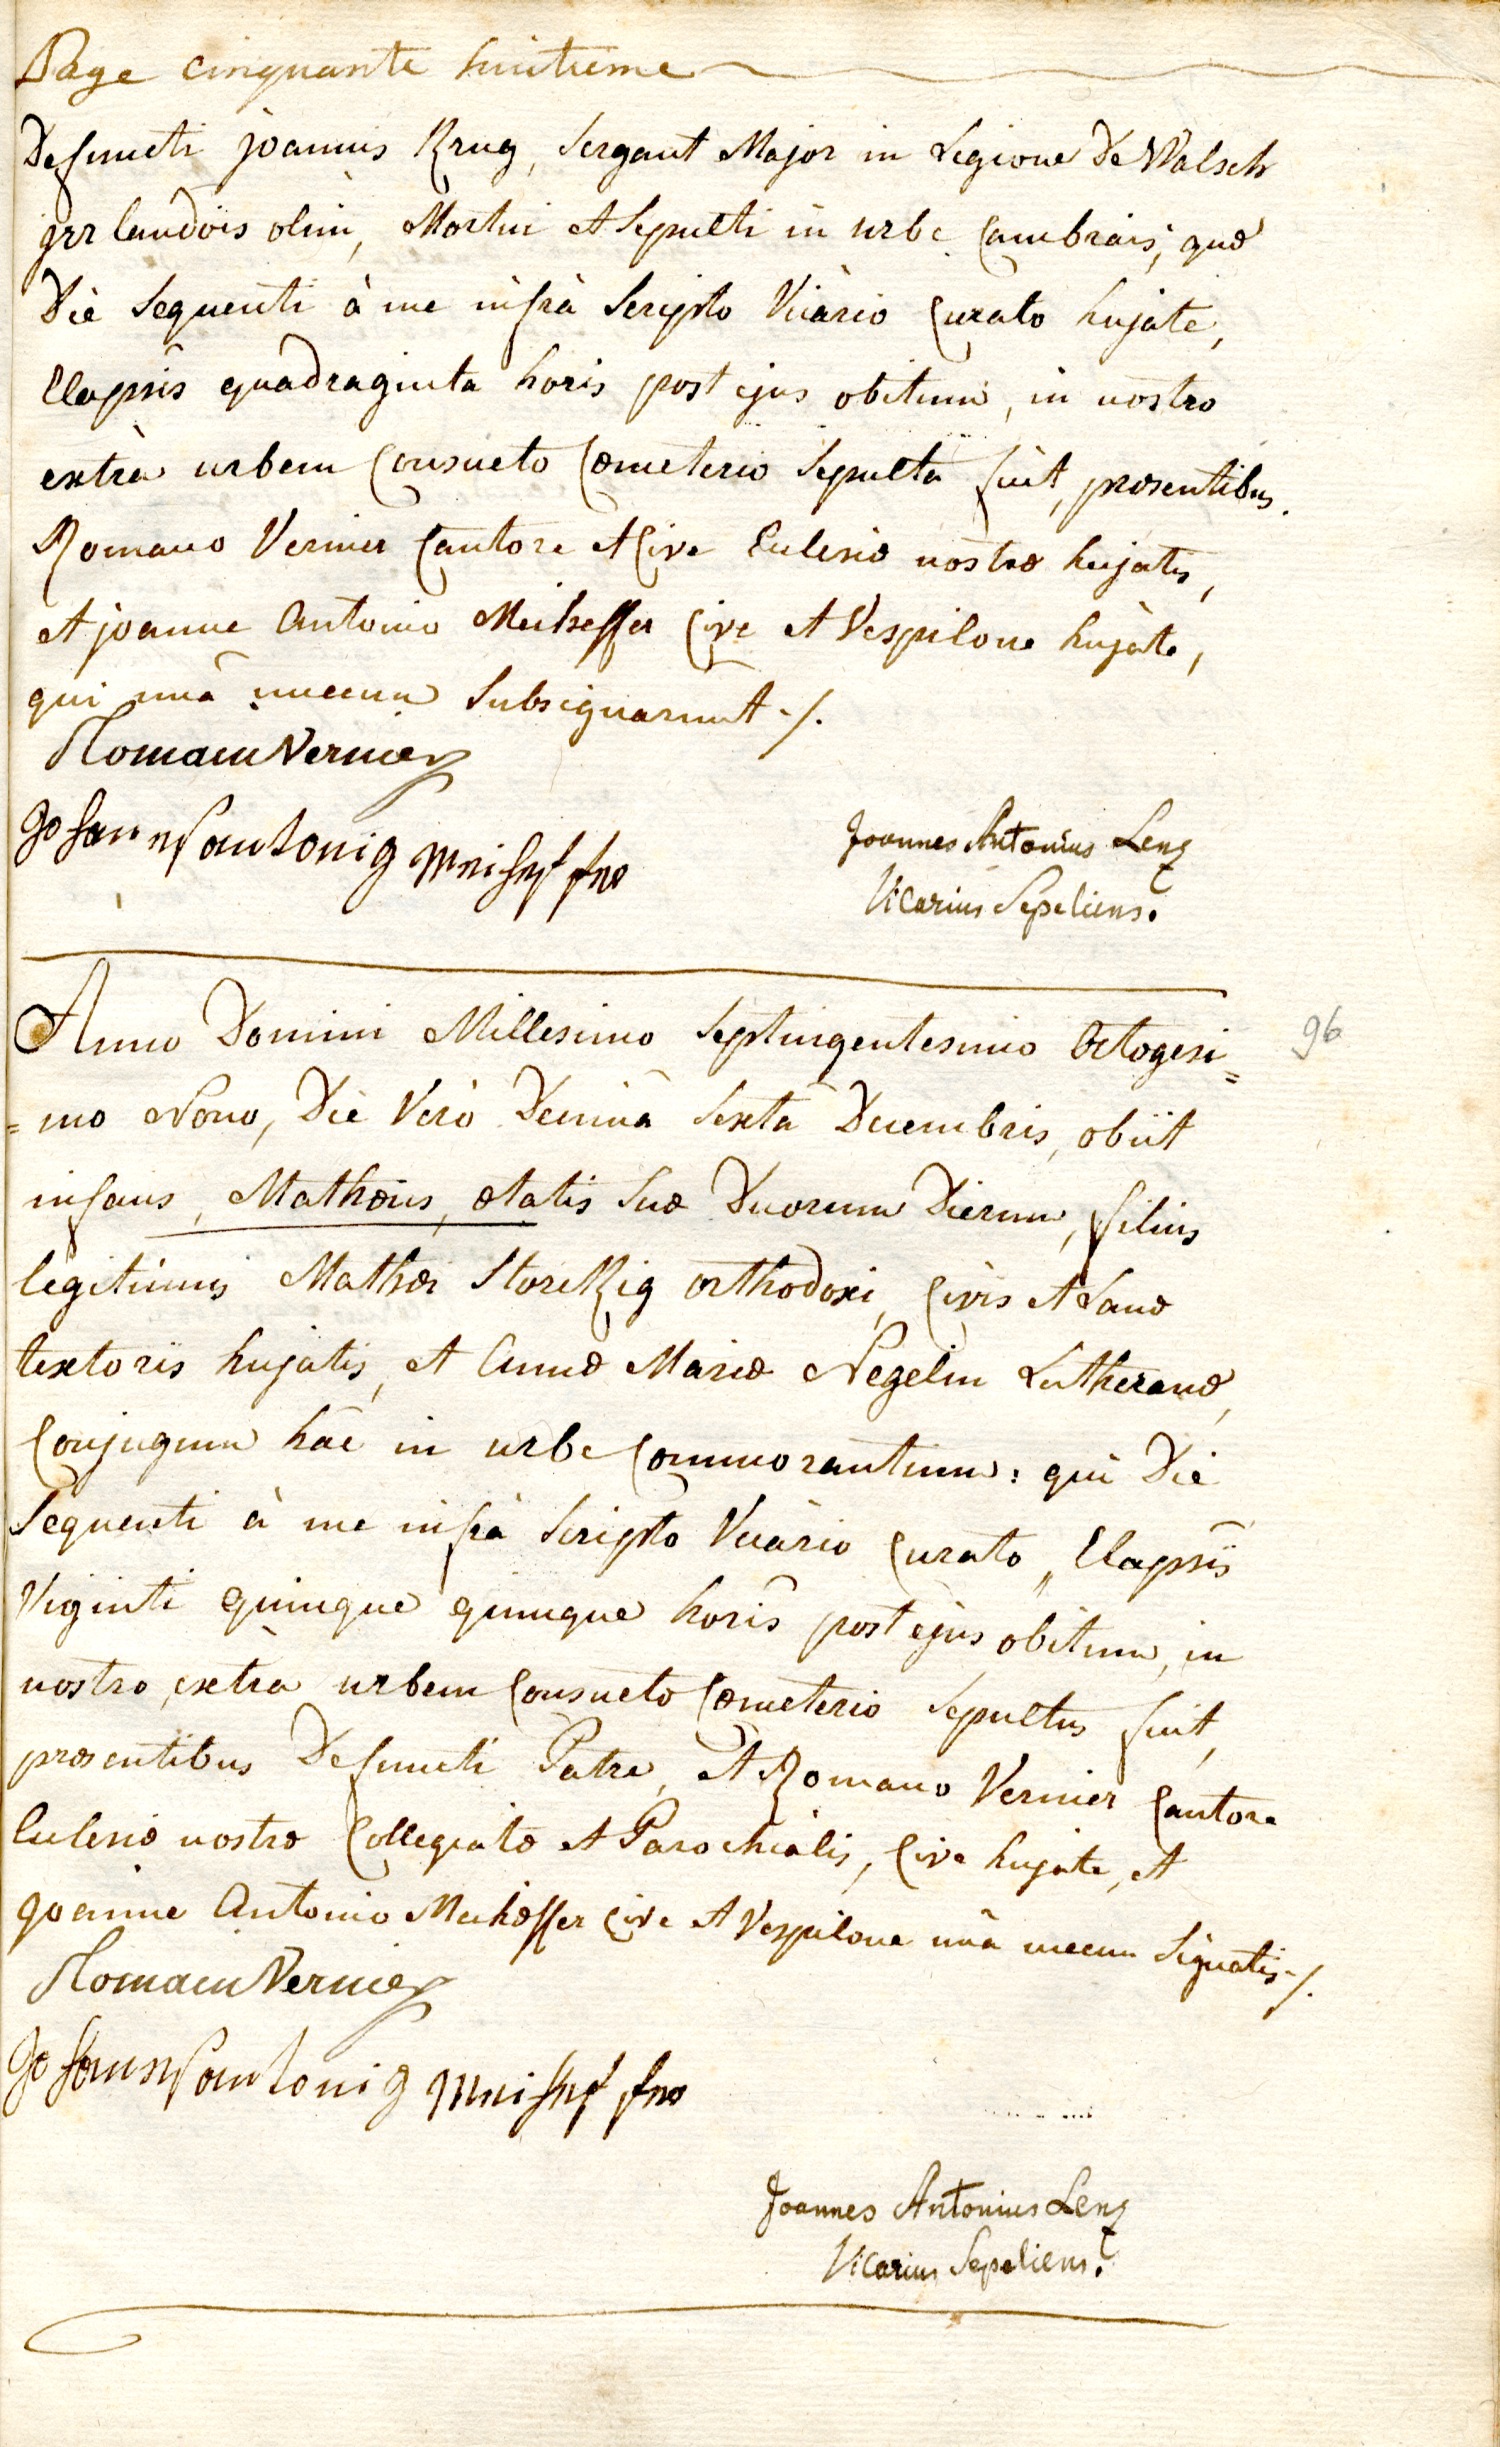 Page cinquante huitieme
Defuncti joannis Krug, Sergant Major in Legione De Walsch
jrrlandois olim, Mortui et Sepulti in urbe Cambrais; quæ
Die Sequenti à me infrà Scripto Vicàrio Curato hujate,
Elapsis quadraginta horis post ejus obitum, in nostro
extrà urbem Consueto Cœmeterio Sepulta fuit, præsentibus
Romano Vernier Cantore et Cive Eclesiæ nostræ hujatis,
et joanne Antonio Meiheffer Cive et Vespilone hujate,
qui unà mecum Subsignarunt ./.
Romain Vernier
Johannes antonig Meiheffer
Joannes Antonius Lenz
Vicarius Sepeliens.
Anno Domini Millesimo Septingentesimo Octogesi=
96
=mo Nono, Die Verò Decimâ Sextâ Decembris, obiit
infans, Mathæus, ætatis Suæ Duorum Dierum, filius
legitimus Mathæi StoreKig orthodoxi, Civis et Lanæ
textoris hujatis, et Annæ Mariæ Negelin Lutheranæ,
Conjugum hâc in urbe Commorantium: qui Die
Sequenti à me infrà Scripto Vicàrio Curato, Elapsis
Viginti quinque quinque horis post ejus obitum, in
nostro, extrà urbem Consueto Cœmeterio Sepultus fuit,
præsentibus Defuncti Patre, et Romano Vernier Cantore
Eclesiæ nostræ Collegiatæ et Parochialis, Cive hujate, et
joanne Antonio Meihæffer Cive et Vespilone unà mecum Signatis ./.
Romain Vernier
Johannes antonig Meiheffer
Joannes Antonius Lenz
Vicarius Sepeliens.